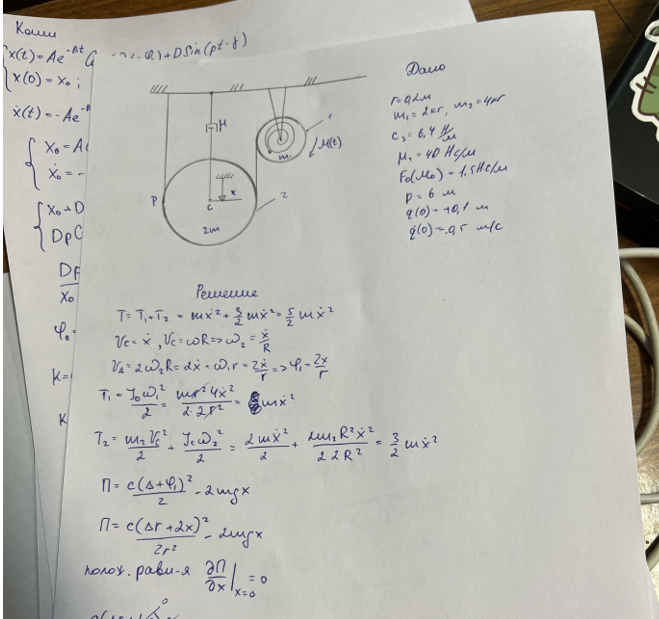 Коши
x(t) = Ae^-βt
+ DSin(pt-γ)
x(0) = x₀ ;
ẋ(t) = -Ae
x₀ = A
ẋ₀ = -
x₀ - D
Dp
x₀
φ₀ =
K =
K
μ
1
m₁
M(t)
P
c
x
2
2m
Дано
r = 0,2 м
m₁ = 2 кг, m₂ = 4 кг
c₃ = 6,4 Н/м
μ₁ = 40 Нс/м
F₀(M₀) = 1,5 Нс/м
p = 6 м
q(0) = +0,1 м
q̇(0) = 0,5 м/с
Решение
T = T₁ + T₂ = mẋ² + 3/2 mẋ² = 5/2 mẋ²
V_C = ẋ, V_C = ωR => ω₂ = ẋ/R
V_A = 2ω₂R = 2ẋ = ω₁r = 2ẋ/r => φ₁ = 2x/r
T₁ = J₀ω₁²/2 = mr²4ẋ²/2·2r² = mẋ²
T₂ = m₂V_C²/2 + J_Cω₂²/2 = 2mẋ²/2 + 2m₂R²ẋ²/2 2R² = 3/2 mẋ²
П = c(Δ+φ₁)²/2 - 2mgx
П = c(Δr+2x)²/2r² - 2mgx
полож. равн-я ∂П/∂x |x=0 = 0